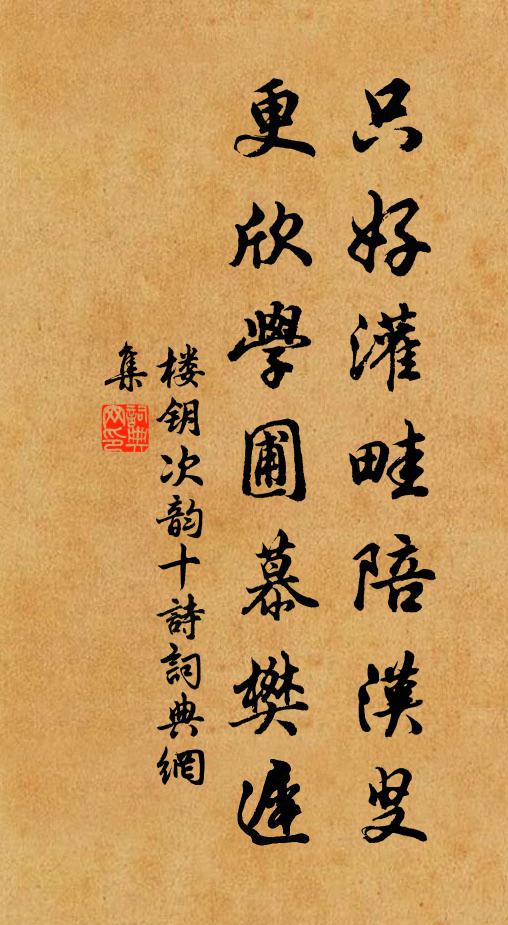 只好灌畦陪漢叟
更欣學圃慕樊遲
楼钥次韵十詩詞典網
集
詞典網印